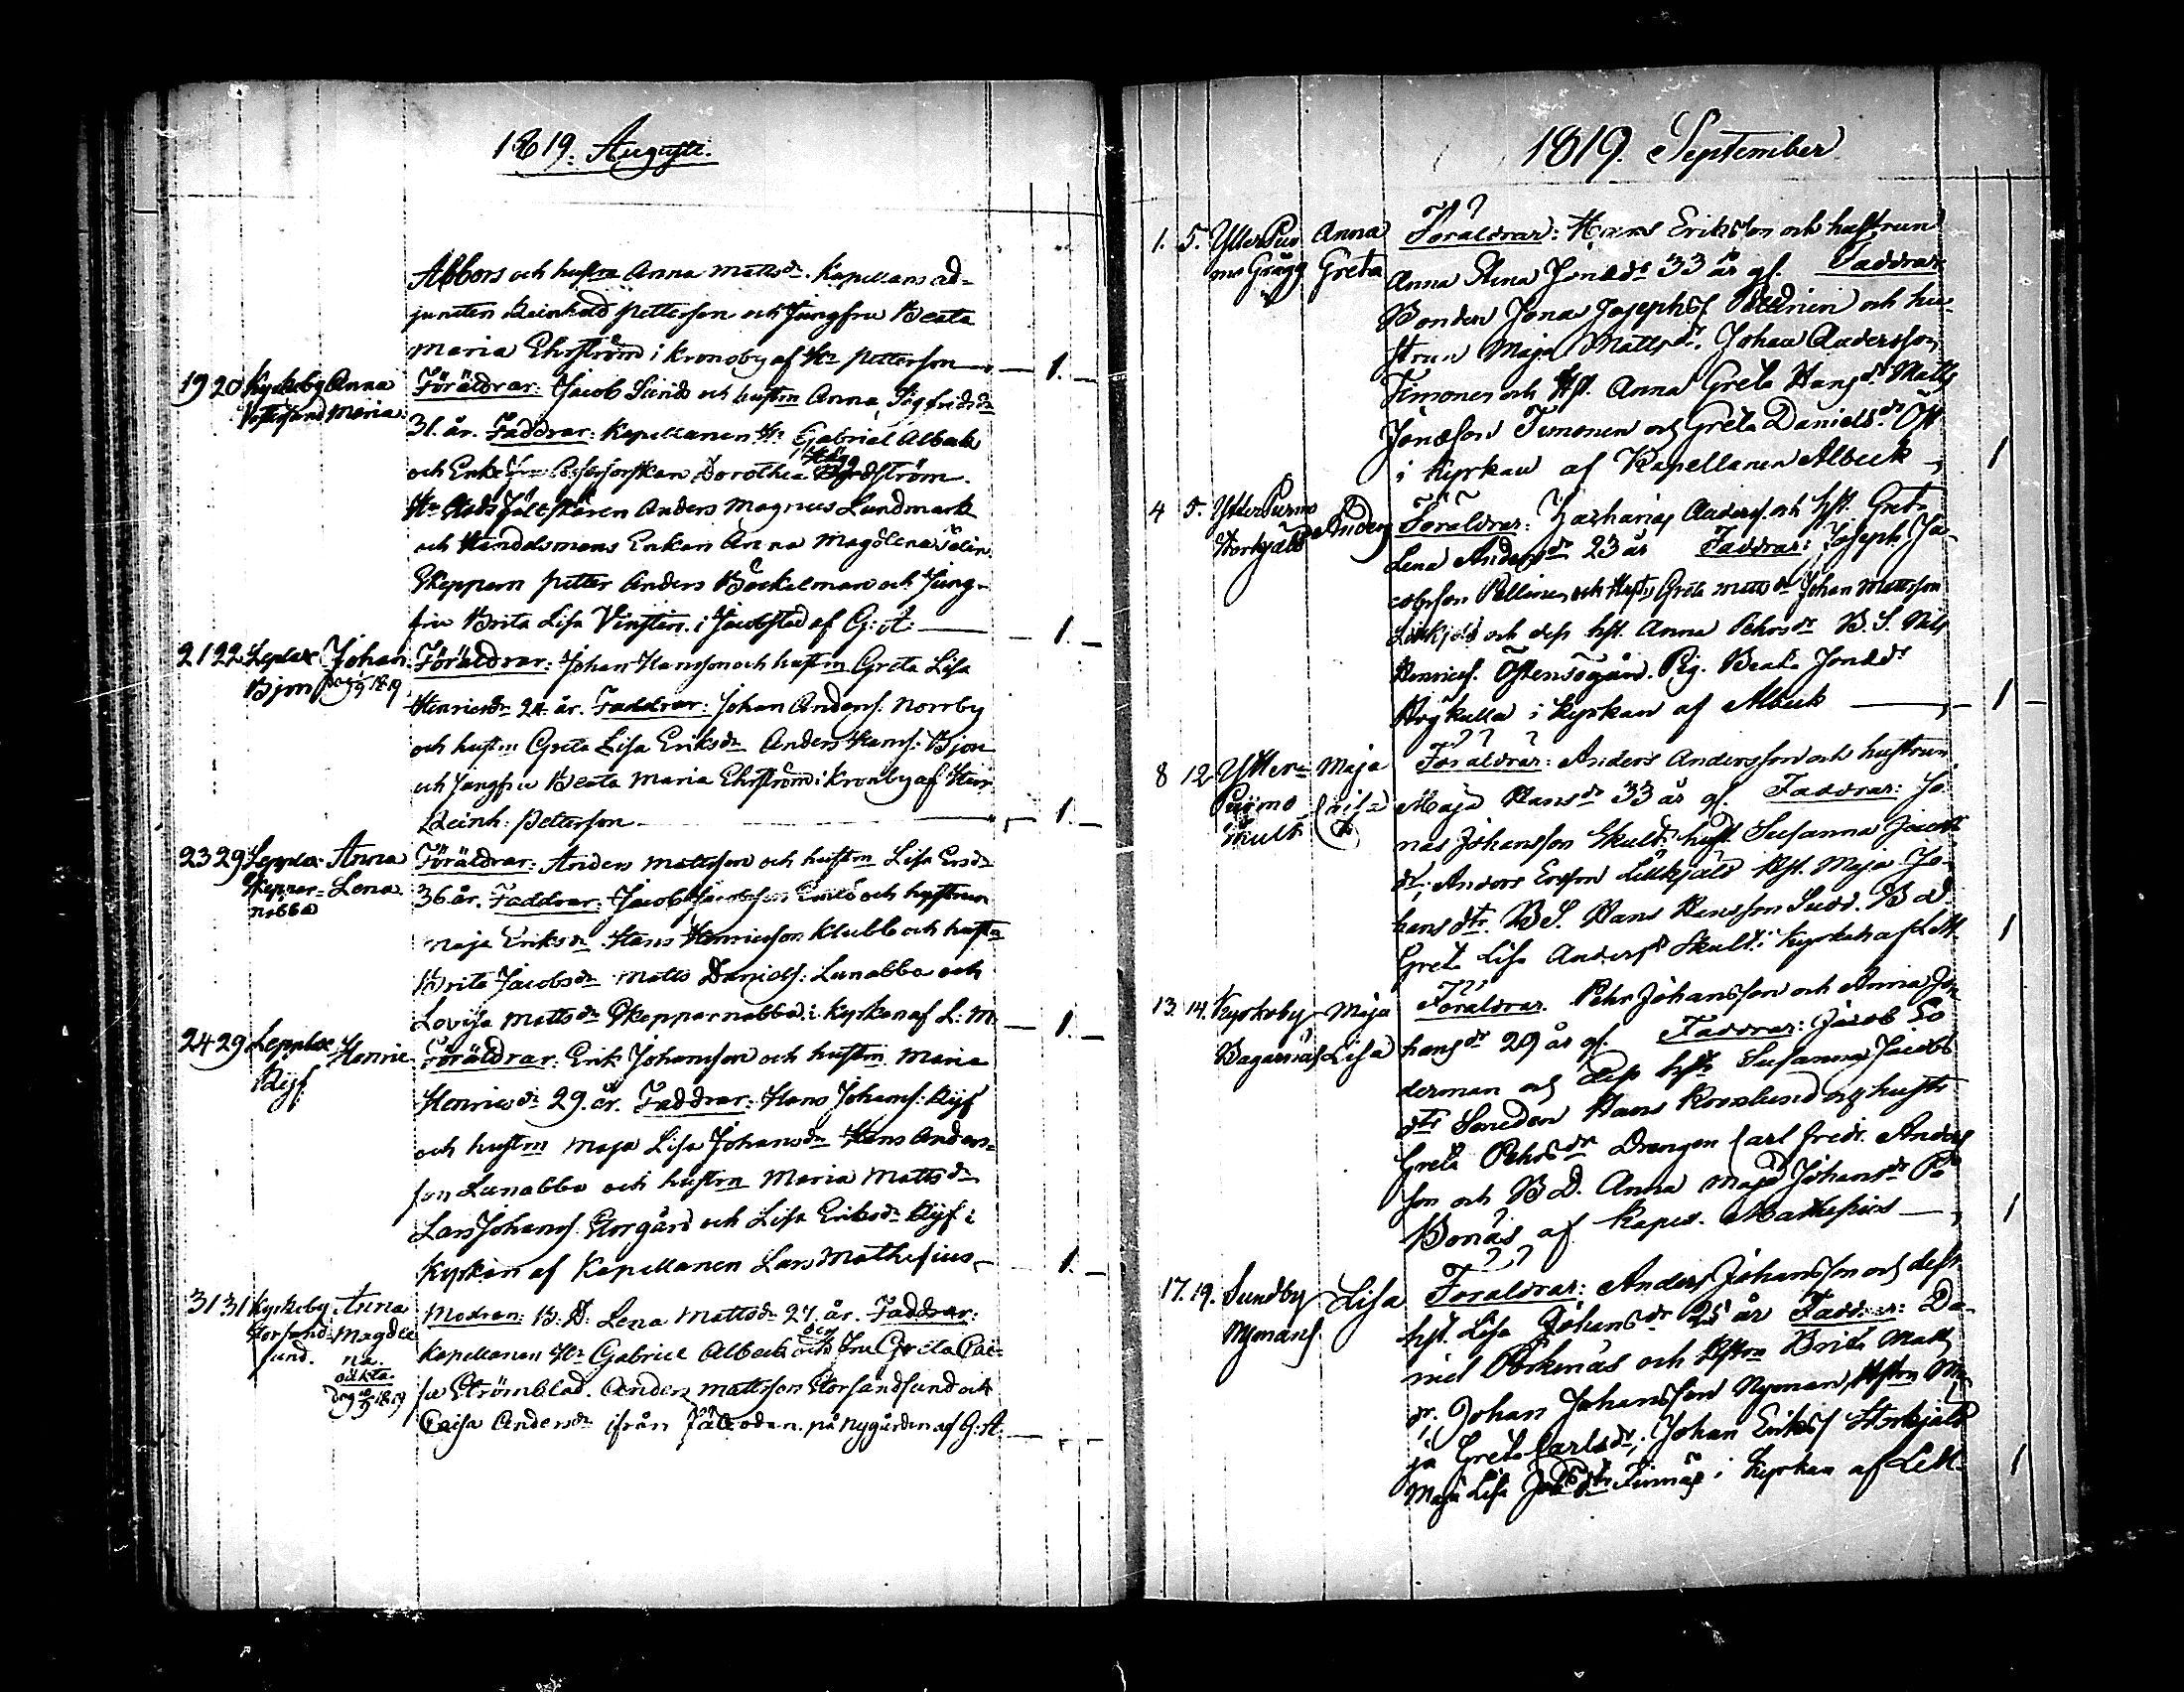 1819. Augusti.
Abbors och hustru Anna Mattsdr. Kapellans ad-
juncten Reinhold Petterson och Jungfru Beata
Maria Ehrström i Kronoby af Hr Petterson — 1.
19 20 Kyrkoby Anna Föräldrar: Jacob Sund och hustru Anna Sigfridsdr
Maria. 31. år. Faddrar: Kapellanen Hr Gabriel Albeck
och Enke Fru Dorothea Höggström.
Hr Anders Magnus Lundmark
och Handelsmans Enkan Anna Magdlena
Skepparn Petter Anders Böckelman och Jung-
fru Brita Lisa i Jacobstad af G: A: — 1.
21 22 Leplax Johan Föräldrar: Johan Hansson och hustru Greta Lisa
Bjon Henricsdr 24 år. Faddrar: Johan Anders: Norrby
och hustru Greta Lisa Eriksdr Anders Hans: Bjon
och Jungfru Beata Maria Ehrström i Kronby af Herr
Reinh: Peterson — 1.
23 29 Lepplax Anna Föräldrar: Anders Mattsson och hustru Lisa Ersdr
Skeppar- Lena 36 år. Faddrar: Jacob Jacobsson och hustrun
nabba Maja Eriksdr Hans Henricsson Klubb och hustru
Brita Jacobsdr Matts Daniels: Lunabba och
Lovisa Mattsdr Skepparnabba i Kyrkan af L: M: — 1.
24 29 Lepplax Henric Föräldrar: Erik Johansson och hustru Maria
Henricsdr 29. år. Faddrar: Hans Johans:
och hustru Maja Lisa Johansdr Hans Anders-
son Lunabba och hustru Maria Mattsdr
Lars Johans: Storgård och Lisa Eriksdr i
Kyrkan af Kapellanen Lars Mathesius — 1.
31 31 Kyrkoby Anna Modren: B: D: Lena Mattsdr 27. år. Faddrar:
Storsand- Magdle Kapellanen Hr Gabriel Albeck och Fru Greta Cai-
sund. na. sa Strömblad. Anders Mattsson Storsandsund och
oäkta. Caisa Andersdr ifrån på Nygården af G: A:
1819. September
1. 5. Ytter Pur Anna Föräldrar: Hans Eriksson och hustrun
mo Grägg Greta Anna Stina Jonsdr 33 år gl. Faddrar:
Bonden Jonas Josephs Pellinen och hu-
strun Maja Mattsdr. Johan Andersson
Timonen och Hst. Anna Greta Hansdr Matts
Jonsson Timonen och Greta Danielsdr
i Kyrkan af Kapellanen Albeck — 1
4 5. Ytter Purmo Anders Föräldrar: Zacharias Anders. och hst. Greta
Storkjäld Lena Andersdr 23 år Faddrar: Joseph Ja-
cobsson Pellinen och Hustru Greta Mattsdr Johan Mattsson
Lillkjäld och dess hst. Anna Pehrsdr B. S. Nils
Henrics. Östensögård. Pig. Beata Jonsdr
Högkulla i Kyrkan af Albeck — 1
8 12 Ytter- Maja Föräldrar: Anders Andersson och hustrun
Purmo Caisa Maja Hansdr 33 år gl. Faddrar: Jo-
Skult nas Johansson Skult hust Susanna Jacobs
dr, Anders Ersson Lillkjäld Hst. Maja Jo-
hans dtr. B S. Hans Hansson Sved. B D.
Greta Lisa Andersdr Skult i Kyrkan af 1
13. 14. Kyrkoby Maja Föräldrar. Pehr Johansson och Anna Jo-
Bagarnäs Lisa hans dr 29 år gl. Faddrar: Jacob So
derman och dess hst Susanna Jacobs
dtr Hans Roselund och hustr
Greta Pehrsdr Drengen Carl Fredr. Anders
son och B D. Anna Maja Johansdr På
Bonäs af Kapel. Mathesius — 1
17. 19. Sundby Lisa Föräldrar: Anders Johansson och dess
Nymans. hst. Lisa Johansdr 25 år Faddrar: Da-
niel Porkenäs och Hstru Brita Matts
dr. Johan Johansson Nyman, Hstru Ma-
ja Greta Carlsdr, Johan Eriks Storkjäld
Maja Lisa Finnäs i Kyrkan af 1